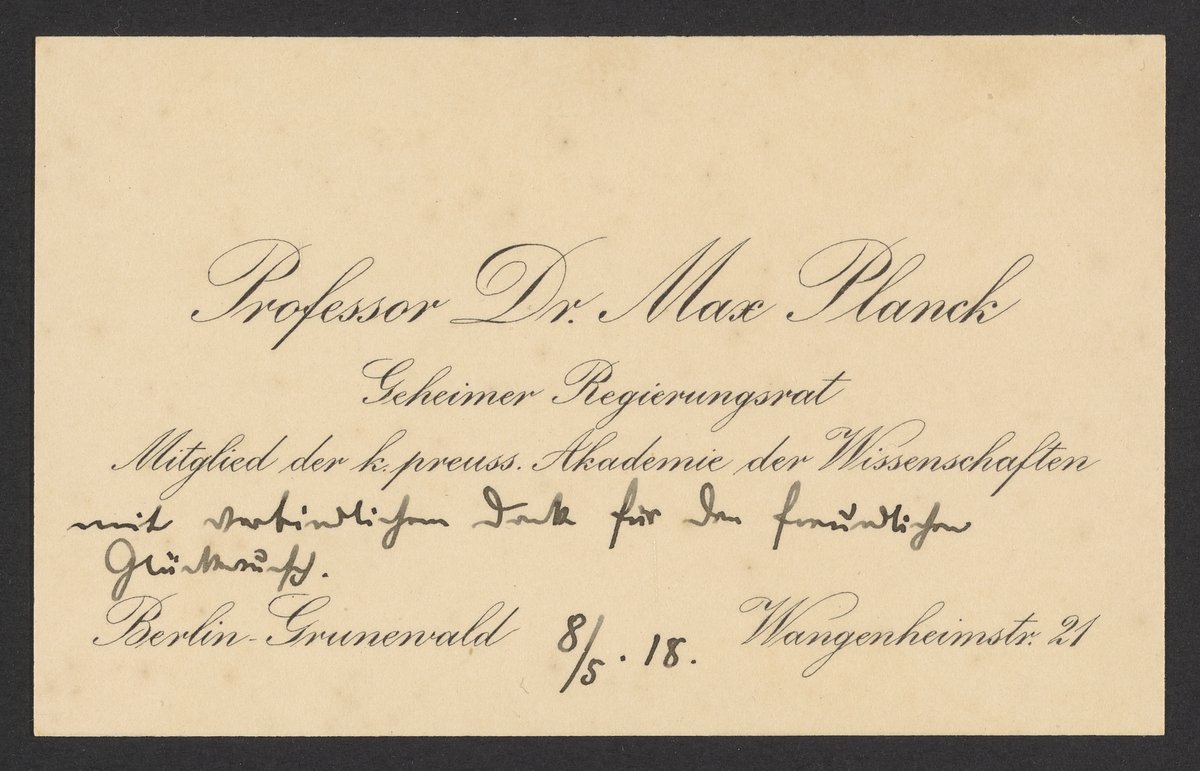 Professor Dr. Max Planck
Geheimer Regierungsrat
Mitglied der k. preuss. Akademie der Wissenschaften
mit verbindlichem Dank für den freundlichen
Glückwunsch.
Berlin-Grunewald 8/5. 18. Wangenheimstr. 21